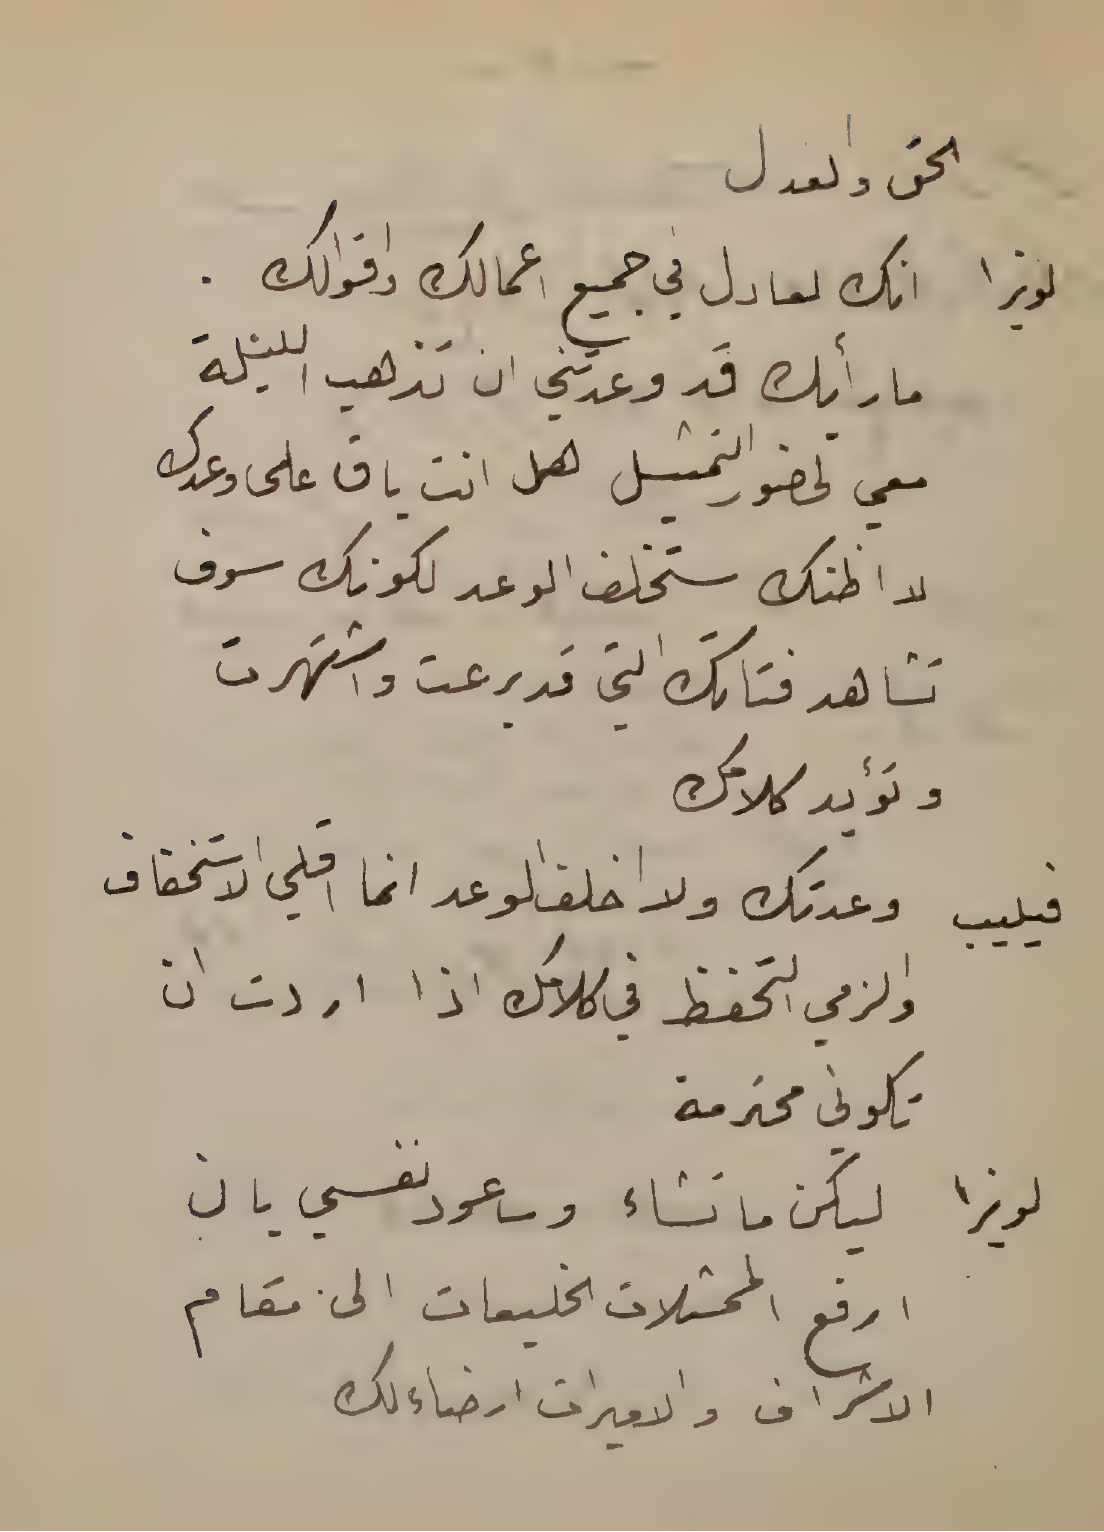 الحق والعدل
لويزا انك لعادل في جميع اعمالك واقوالك .
ما رأيك قد وعدتني ان تذهب الليلة
معي لحضور التمثيل هل انت باق على وعدك
لا اظنك ستخلف الوعد لكونك سوف
تشاهد فتاتك التي قد برعت واشتهرت
وتؤيد كلامك
فيليب وعدتك ولا اخلف الوعد انما اقلي الاستخفاف
والزمي التحفظ في كلامك اذا اردت ان
تكوني محترمة
لويزا ليكن ما تشاء وساعود نفسي بان
ارفع الممثلات الخليعات الى مقام
الاشراف والاميرات ارضاء لك